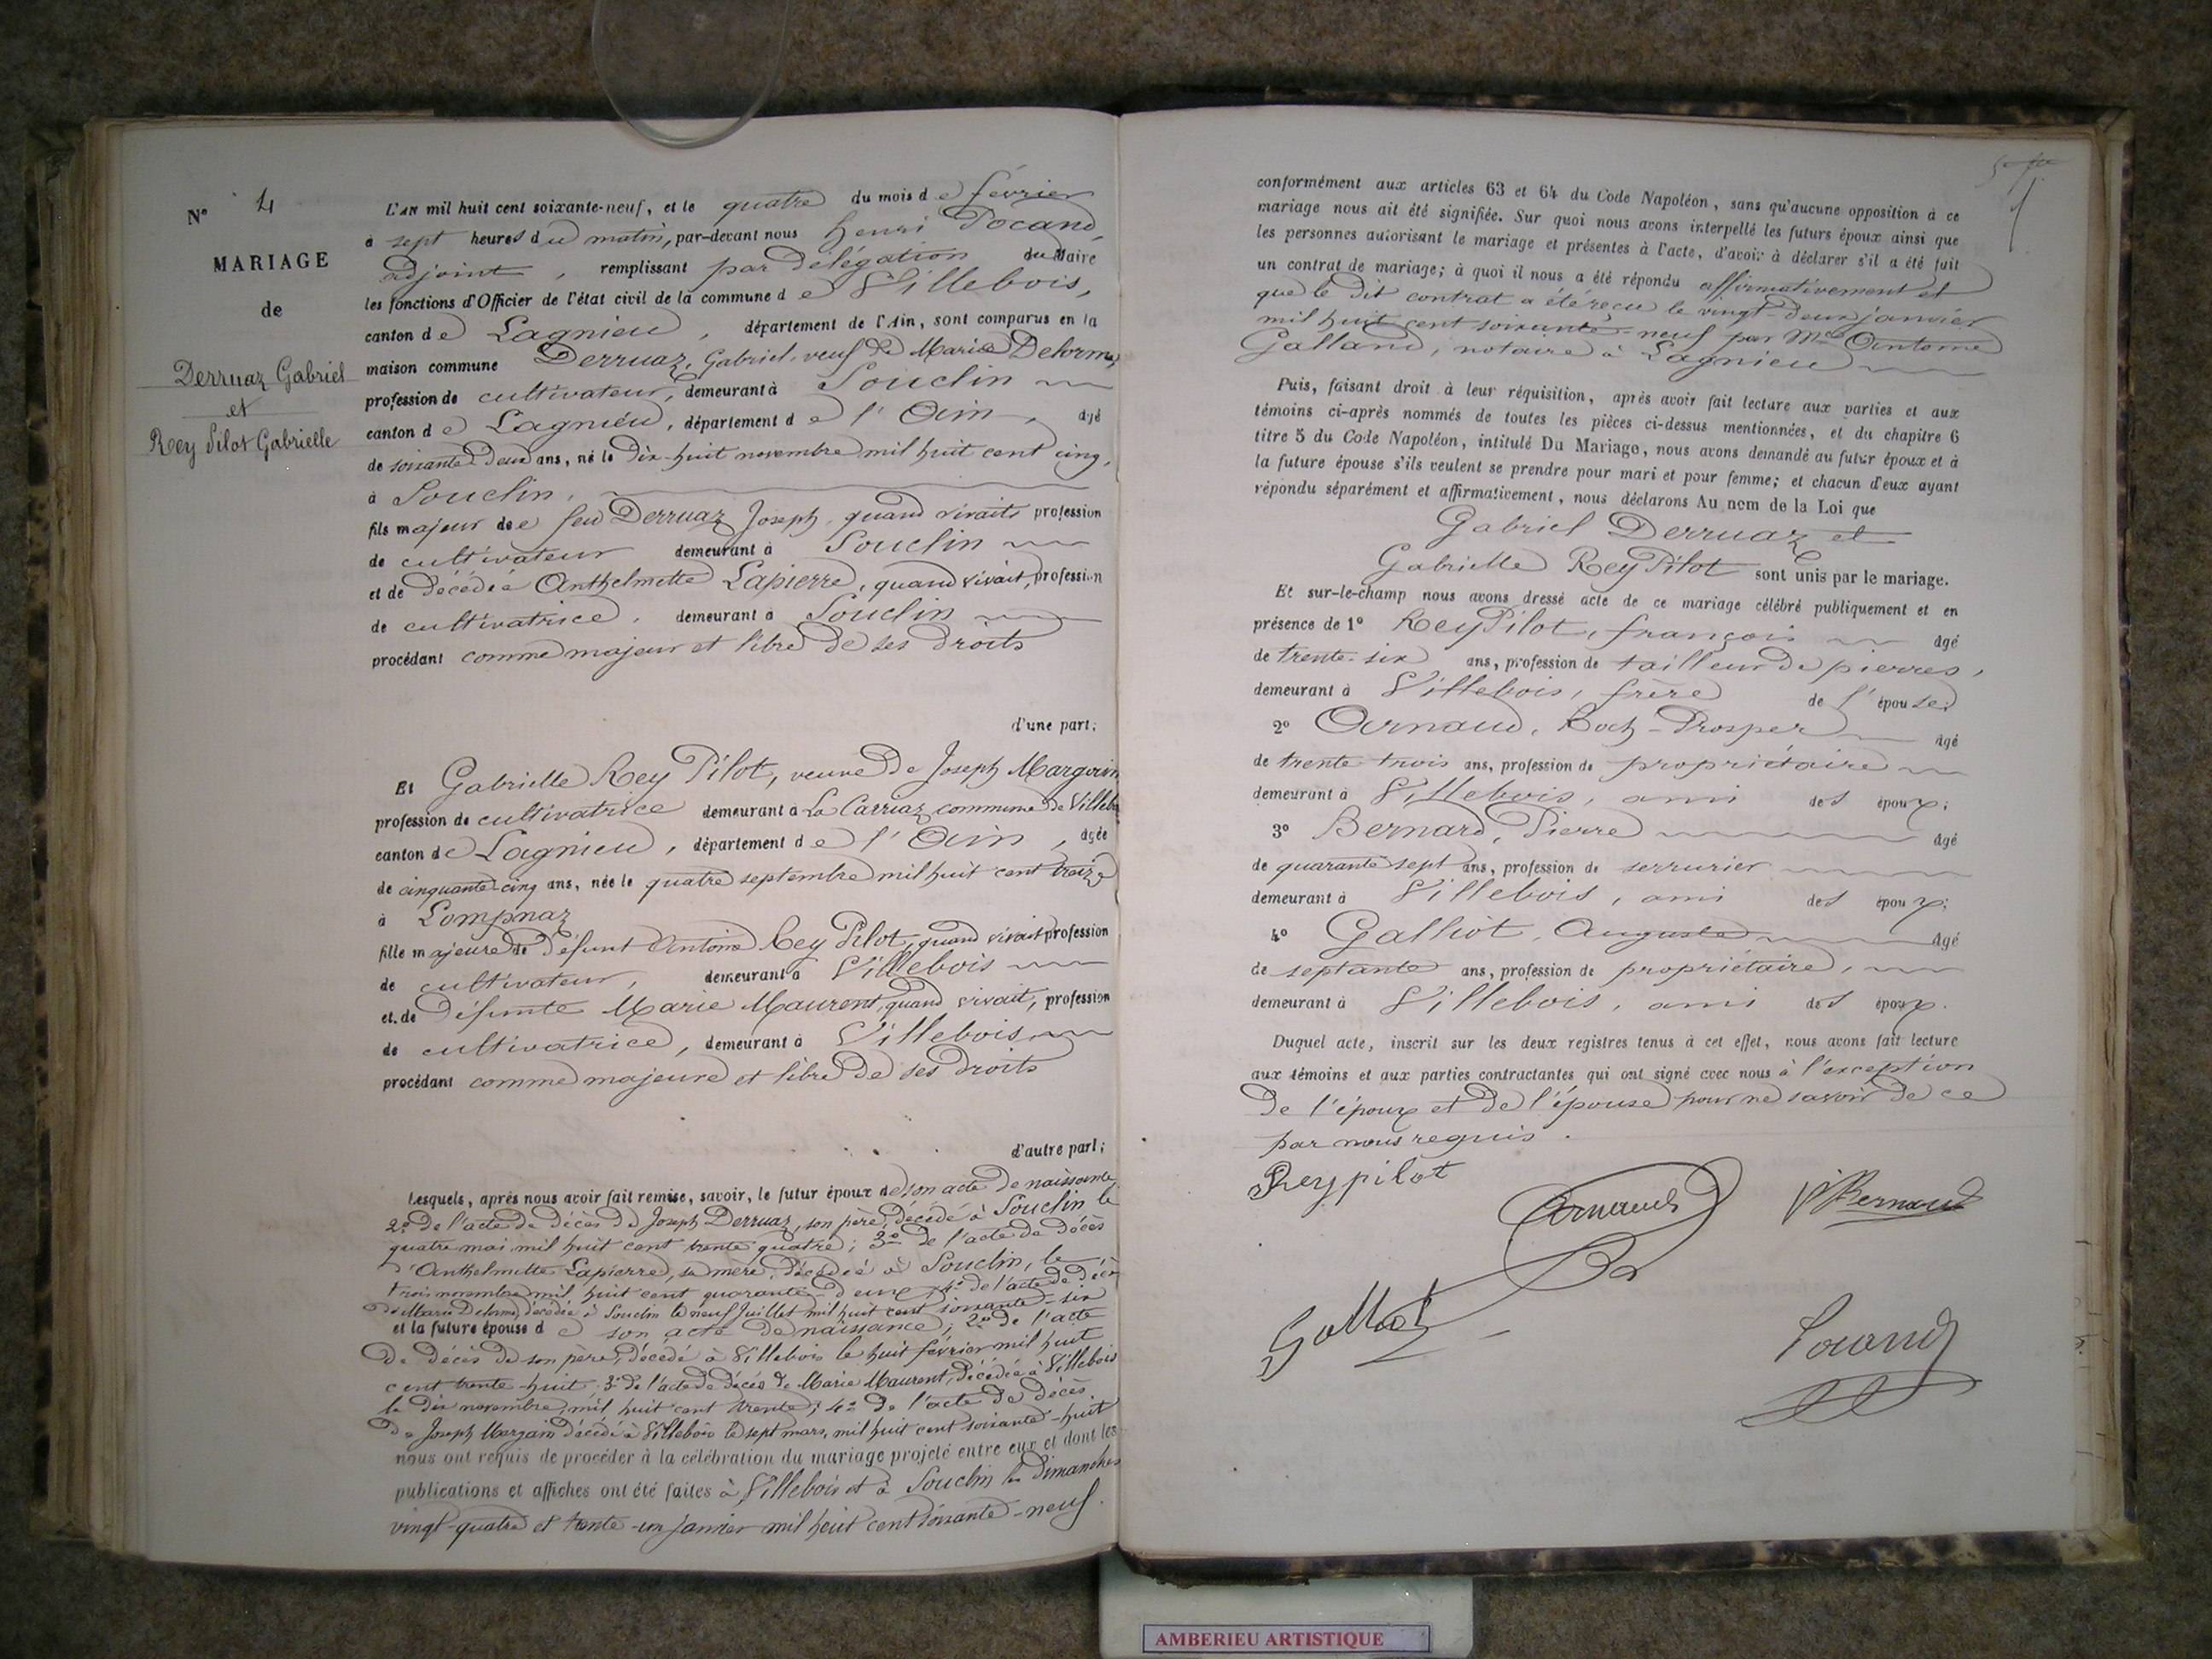 N° 4
MARIAGE
de
Derruaz Gabriel
et
Rey Pilot Gabrielle
L'AN mil huit cent soixante-neuf, et le quatre du mois de février
à sept heures du matin, par-devant nous henri Pocand,
adjoint, remplissant par délégation du Maire
les fonctions d'Officier de l'état civil de la commune de Villebois,
canton de Lagnieu, département de l'Ain, sont comparus en la
maison commune Derruaz, Gabriel, veuf de Marie Delorme,
profession de cultivateur, demeurant à Souclin
canton de Lagnieu, département de l'Ain, âgé
de soixante-deux ans, né le dix-huit novembre mil huit cent cinq,
à Souclin,
fils majeur de feu Derruaz Joseph, quand vivait, profession
de cultivateur demeurant à Souclin
et de décédée Anthelmette Lapierre, quand vivait, profession
de cultivatrice, demeurant à Souclin
procédant comme majeur et libre de ses droits
d'une part;
Et Gabrielle Rey Pilot, veuve de Joseph Margain
profession de cultivatrice demeurant à La Carriaz commune de Villeb
canton de Lagnieu, département de l'Ain, âgée
de cinquante-cinq ans, née le quatre septembre mil huit cent treize
à Lompnaz
fille majeure de défunt Antoine Rey Pilot, quand vivait profession
de cultivateur, demeurant à Villebois
et de défunte Marie Maurent, quand vivait, profession
de cultivatrice, demeurant à Villebois
procédant comme majeure et libre de ses droits
d'autre part;
Lesquels, après nous avoir fait remise, savoir, le futur époux de son acte de naissance
2° de l'acte de décès de Joseph Derruaz, son père, décédé à Souclin le
quatre mai mil huit cent trente quatre; 3° de l'acte de décès
d'Anthelmette Lapierre, sa mère, décédée à Souclin, le
trois novembre mil huit cent quarante-deux; 4° de l'acte de décès
de Marie Delorme, décédée à Souclin le neuf Juillet mil huit cent soixante-six
et la future épouse de son acte de naissance; 2° de l'acte
de décès de son père, décédé à Villebois le huit février mil huit
cent trente-huit; 3° de l'acte de décès de Marie Maurent, décédée à Villebois
le dix novembre mil huit cent trente; 4° de l'acte de décès
de Joseph Margain décédé à Villebois le sept mars, mil huit cent soixante-huit
nous ont requis de procéder à la célébration du mariage projeté entre eux et dont les
publications et affiches ont été faites à Villebois et à Souclin les dimanches
vingt-quatre et trente-un janvier mil huit cent soixante-neuf.
conformément aux articles 63 et 64 du Code Napoléon, sans qu'aucune opposition à ce
mariage nous ait été signifiée. Sur quoi nous avons interpellé les futurs époux ainsi que
les personnes autorisant le mariage et présentes à l'acte, d'avoir à déclarer s'il a été fait
un contrat de mariage; à quoi il nous a été répondu affirmativement et
que le dit contrat a été reçu le vingt-deux janvier
mil huit cent soixante-neuf par Me Antoine
Galland, notaire à Lagnieu
Puis, faisant droit à leur réquisition, après avoir fait lecture aux parties et aux
témoins ci-après nommés de toutes les pièces ci-dessus mentionnées, et du chapitre 6
titre 5 du Code Napoléon, intitulé Du Mariage, nous avons demandé au futur époux et à
la future épouse s'ils veulent se prendre pour mari et pour femme; et chacun d'eux ayant
répondu séparément et affirmativement, nous déclarons Au nom de la Loi que
Gabriel Derruaz et
Gabrielle Rey Pilot sont unis par le mariage.
Et sur-le-champ nous avons dressé acte de ce mariage célébré publiquement et en
présence de 1° Rey Pilot, françois âgé
de trente-six ans, profession de tailleur de pierres,
demeurant à Villebois, frère de l'épouse;
2° Arnaud, Roch-Prosper âgé
de trente trois ans, profession de propriétaire
demeurant à Villebois, ami des époux;
3° Bernard, Pierre âgé
de quarante sept ans, profession de serrurier
demeurant à Villebois, ami des époux;
4° Galliot, Auguste âgé
de septante ans, profession de propriétaire,
demeurant à Villebois, ami des époux.
Duquel acte, inscrit sur les deux registres tenus à cet effet, nous avons fait lecture
aux témoins et aux parties contractantes qui ont signé avec nous à l'exception
de l'époux et de l'épouse pour ne savoir de ce
par nous requis.
Reypilot
Arnaud
P Bernard
Galliot
Pocand
AMBERIEU ARTISTIQUE